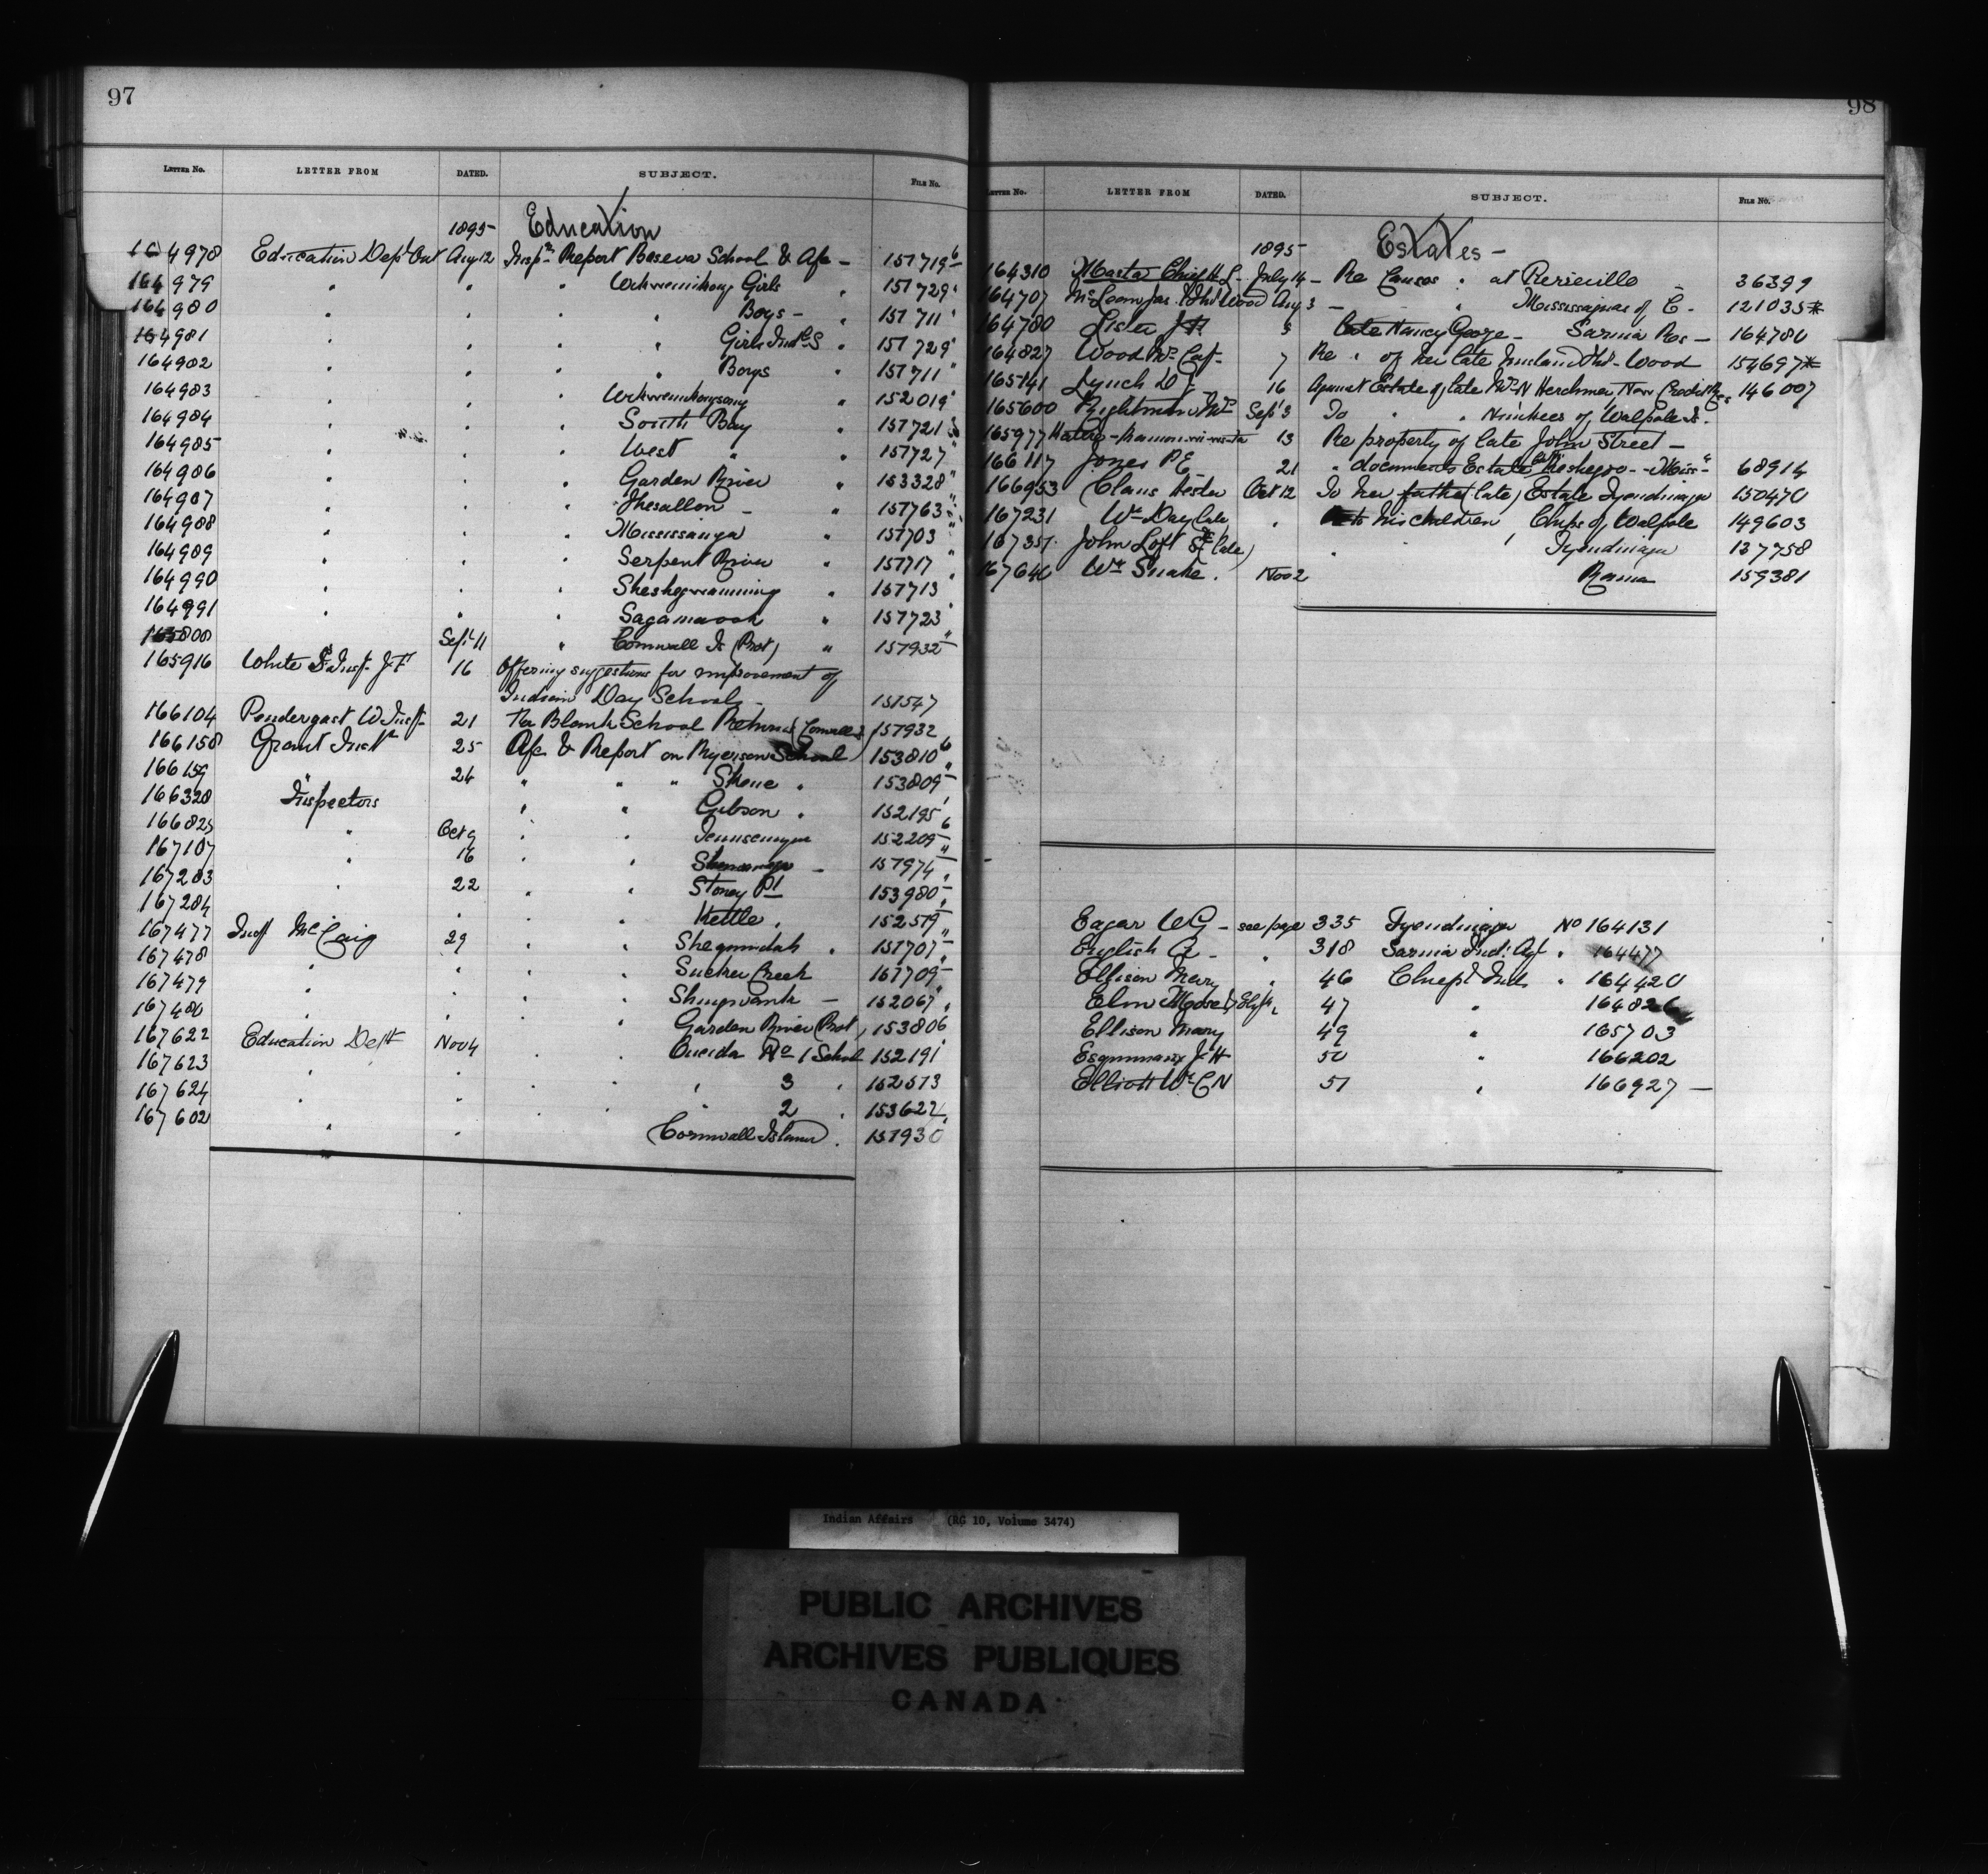 97
LETTER No. LETTER FROM DATED. SUBJECT. FILE No.
1895 Education
164978 Education Dept Ont Aug 12 Insp.n Report School & Afc - 151719
164979 " " " Girls " 151729
164980 " " " Boys - " 151711
164981 " " " Girls Indl S " 151729
164982 " " " Boys " 151711
164983 " " " " 152019
164984 " " " South Bay " 151721
164985 " " " West " " 151727
164986 " " " Garden River " 153328
164987 " " " Thesallon - " 151763
164988 " " " Mississauga " 151703
164989 " " " Serpent River " 151717
164990 " " " Sheshegwanning " 151713
164991 " " " Sagamaook " 151723
Sept 11 " Cornwall Is (Prot) " 151932
165916 White J.F. 16 Offering suggestions for improvement of
Indian Day Schools - 151547
166104 Pendergast W Inspt 21 Re Blank School Returns (Cornwall I) 151932
166158 Grant Inspt 25 Afc & Report on Ryerson School 153810
166159 " 24 " " " Skene " 153809
166328 Inspectors " " Gibson " 152195
166825 " Oct 9 " " 152209
167107 " 16 " " - 151974
167283 " 22 " " Stoney Pt 153980
167284 " " " Kettle " 152519
167477 Inspt McCaig 29 " " Sheguindah " 151707
167478 " " " " Sucker Creek 151709
167479 " " " " Shingwauk - 152067
167480 " " " Garden River (Prot) 153806
167622 Education Dept Nov 4 " " Oneida No 1 School 152191
167623 " " " " " 3 " 152513
167624 " " " " " 2 " 153622
167602 " " (Cornwall Island) " 151930
98
LETTER No. LETTER FROM DATED. SUBJECT. FILE No.
1895 Estates -
164310 Masta Chief H L - July 14 - Re Canoes " at Pierreville - 36399
164707 Aug 3 - " Mississaguas of C. - 121035*
164780 Lister J H 5 late Nancy George - Sarnia Res - 164780
164827 Wood Mrs Cat- 7 Re " of her late husband - Wood 154697*
165141 Lynch D J - 16 Against Estate of late Mrs N Herchmer New Credit Res 146007
165600 Wightman Mrs Sept 3 To " " Nimkees of Walpole Is.
165977 13 Re property of late John Street -
166117 Jones P E 21 " documents Estate - Miss" 68914
166953 Claus Hester Oct 12 To her father (late) Estate Tyendinaga 150470
167231 Wm Day late " to his children Chips of Walpole 149603
167351 John Loft Sr (late) " " Tyendinaga 137758
167640 Wm Snake. Nov 2 Rama 159381
Eagar W G - see page 335 Tyendinaga No 164131
English A - " 318 Sarnia Ind: Agt " 164477
Ellison Mary " 46 Chiefs Ind " 164420
Elm Moses 47 " 164826
Ellison Mary 49 " 165703
J H 50 " 166202
Elliott Wm C N 51 " 166927 -
Indian Affairs (RG 10, Volume 3474)
PUBLIC ARCHIVES
ARCHIVES PUBLIQUES
CANADA